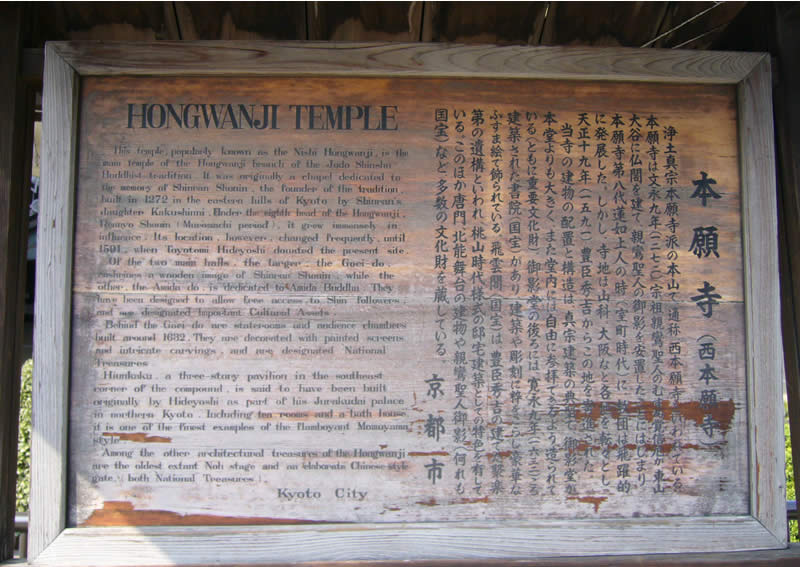 HONGWANJI TEMPLE
This temple, popularly known as the Nishi Hongwanji, is the
main temple of the Hongwanji branch of the Jodo Shinshu
Buddhist tradition. It was originally a chapel dedicated to
the memory of Shinran Shonin, the founder of the tradition,
built in 1272 in the eastern hills of Kyoto by Shinran's
daughter Kakushinni. Under the eighth head of the Hongwanji,
Rennyo Shonin (Muromachi period), it grew immensely in
influence. Its location, however, changed frequently, until
1591, when Toyotomi Hideyoshi donated the present site.
Of the two main halls, the larger, the Goei-do,
enshrines a wooden image of Shinran Shonin, while the
other, the Amida-do, is dedicated to Amida Buddha. They
have been designed to allow free access to Shin followers,
and are designated Important Cultural Assets.
Behind the Goei-do are staterooms and audience chambers
built around 1632. They are decorated with painted screens
and intricate carvings, and are designated National
Treasures.
Hiunkaku, a three-story pavilion in the southeast
corner of the compound, is said to have been built
originally by Hideyoshi as part of his Jurakudai palace
in northern Kyoto. Including tea rooms and a bath house,
it is one of the finest examples of the flamboyant Momoyama
style.
Among the other architectural treasures of the Hongwanji
are the oldest extant Noh stage and an elaborate Chinese-style
gate. (both National Treasures)
Kyoto City
本願寺（西本願寺）
浄土真宗本願寺派の本山で、通称 西本願寺と言われている。
本願寺は文永九年（一二七二）宗祖親鸞聖人の末女覚信尼が東山
大谷に仏閣を建て、親鸞聖人の御影を安置したことにはじまり、
本願寺第八代蓮如上人の時（室町時代）に、教団は飛躍的
に発展した。しかし、寺地は山科、大阪など各地を転々とし、
天正十九年（一五九一）豊臣秀吉からこの地を寄進された。
当寺の建物の配置と構造は、真宗建築の典型で、御影堂が
本堂よりも大きく、また、堂内には自由に参拝できるよう造られて
いる（ともに重要文化財）。御影堂の後ろには、寛永九年（一六三二）ころ
建築された書院（国宝）があり、建築や彫刻に粋をこらし、豪華な
ふすま絵で飾られている。飛雲閣（国宝）は、豊臣秀吉の建てた聚楽
第の遺構といわれ、桃山時代様式の邸宅建築としての特色を有して
いる。このほか唐門、北能舞台の建物や親鸞聖人御影（何れも
国宝）など、多数の文化財を蔵している。
京都市